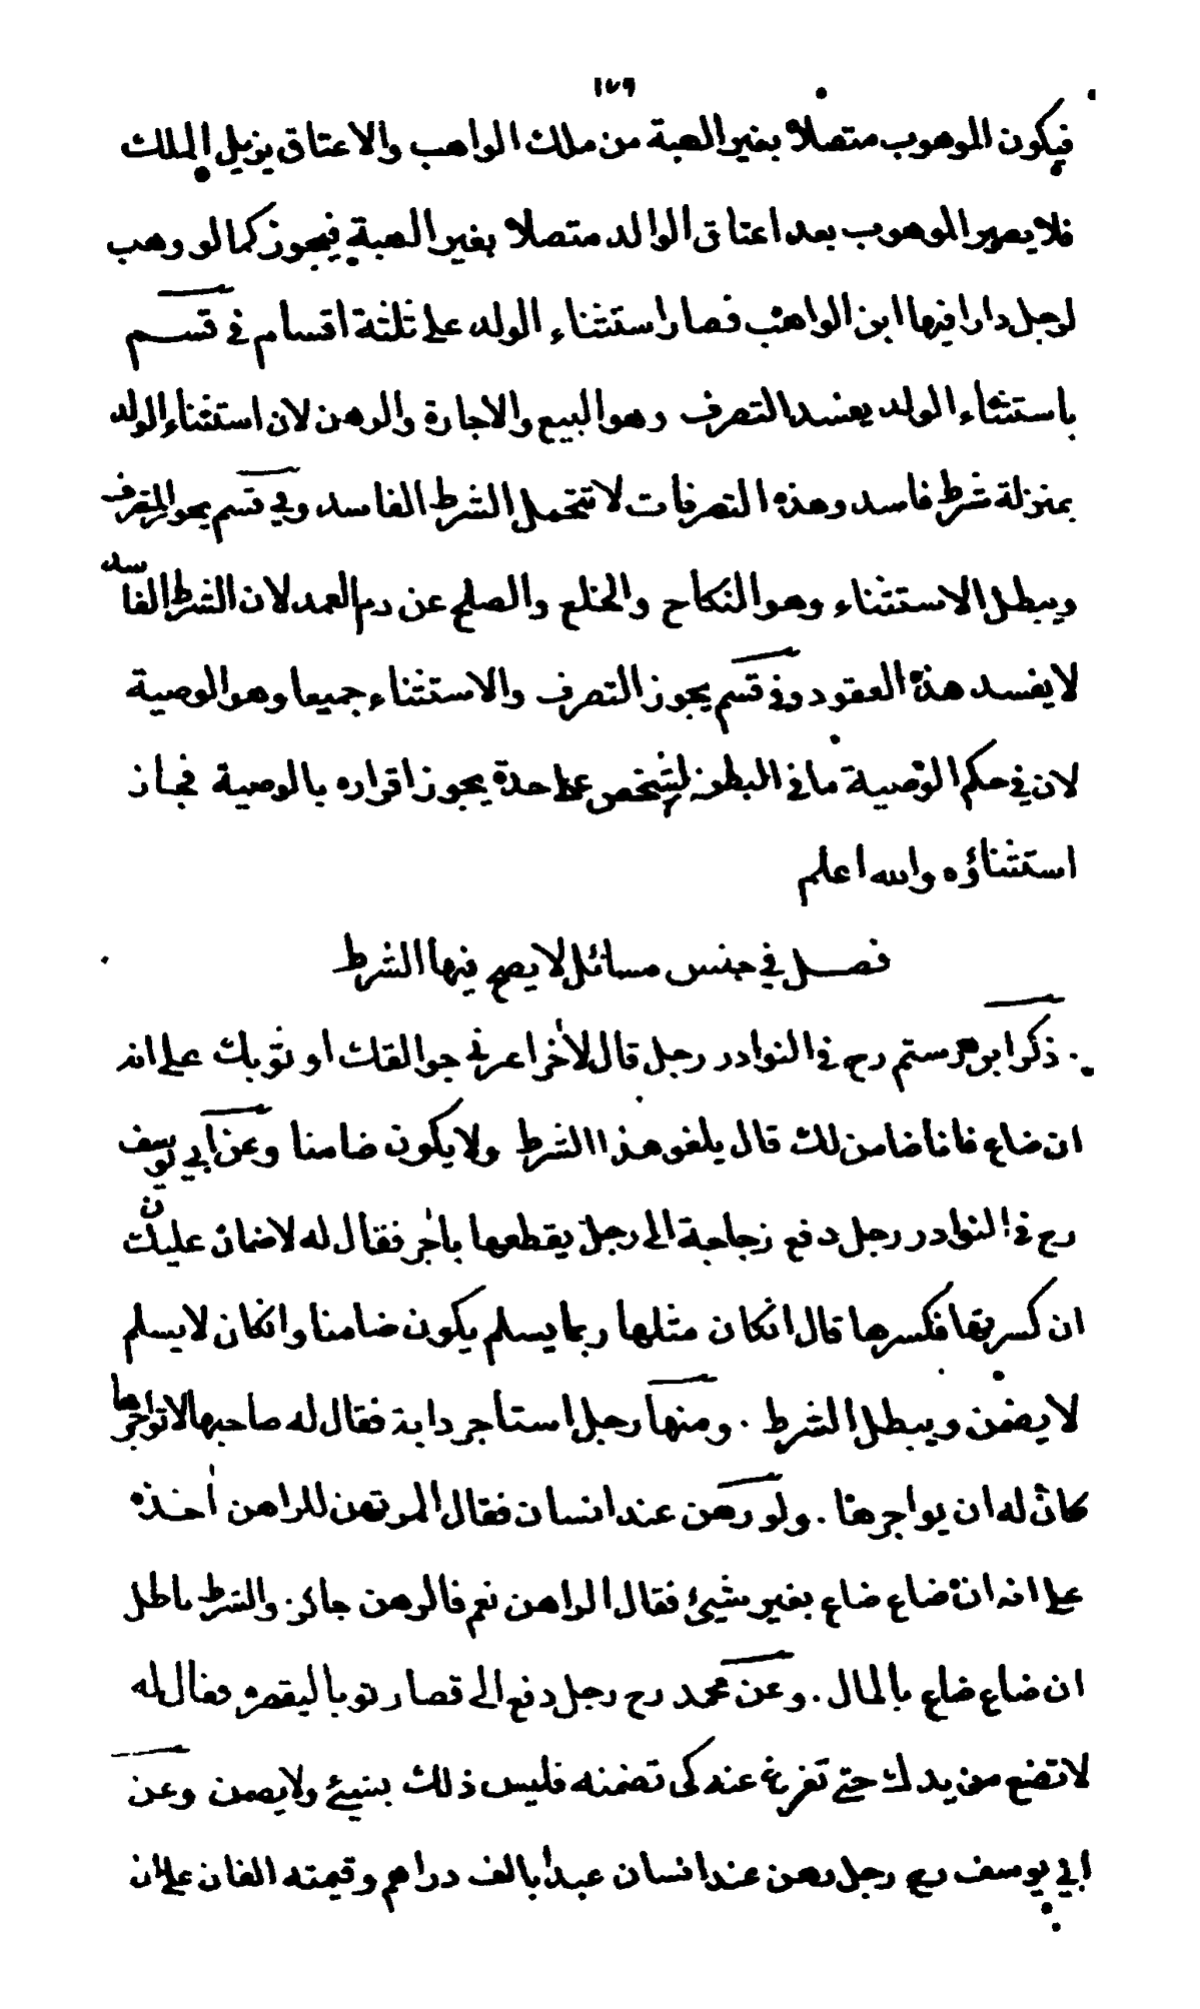 ١٧٩
فيكون الموهوب متصلا بغير الهبة من ملك الواهب والاعتاق يزيل الملك
فلا يصير الموهوب بعد اعتاق الوالد متصلا بغير الهبة فيجوز كما لو وهب
لرجل دارا فيها ابن الواهب فصار استثناء الولد على ثلثة اقسام في قسم
باستثناء الولد يفسد التصرف وهو البيع والاجارة والرهن لان استثناء الولد
بمنزلة شرط فاسد وهذه التصرفات لا تتحمل الشرط الفاسد وفي قسم يجوز التصرف
ويبطل الاستثناء وهو النكاح والخلع والصلح عن دم العمد لان الشرط الفاسد
لا يفسد هذه العقود وفي قسم يجوز التصرف والاستثناء جميعا وهو الوصية
لان في حكم الوصية ما في البطن لشخص على حدة يجوز اقراره بالوصية فجاز
استثناؤه والله اعلم
فصل في جنس مسائل لا يصح فيها الشرط
ذكر ابن رستم رح في النوادر رجل قال لآخر اعرني جوالقك او ثوبك على انه
ان ضاع فانا ضامن لك قال يلغو هذا الشرط ولا يكون ضامنا وعن ابي يوسف
رح في النوادر رجل دفع زجاجة الى رجل يقطعها باجر فقال له لا ضمان عليك
ان كسرتها فكسرها قال انكان مثلها ربما يسلم يكون ضامنا وانكان لا يسلم
لا يضمن ويبطل الشرط . ومنها رجل استاجر دابة فقال له صاحبها لا تواجرها
كان له ان يواجرها . ولو رهن عند انسان فقال المرتهن للراهن آخذه
على انه ان ضاع ضاع بغير شيئ فقال الراهن نعم فالرهن جائز والشرط باطل
ان ضاع ضاع بالمال . وعن محمد رح رجل دفع الى قصار ثوبا ليقصره فقال له
لا تضع من يدك حتى تفرغ عنه كى تضمنه فليس ذلك بشيئ ولا يضمن وعن
ابي يوسف رح رجل رهن عند انسان عبدا بالف دراهم وقيمته الفان على ان